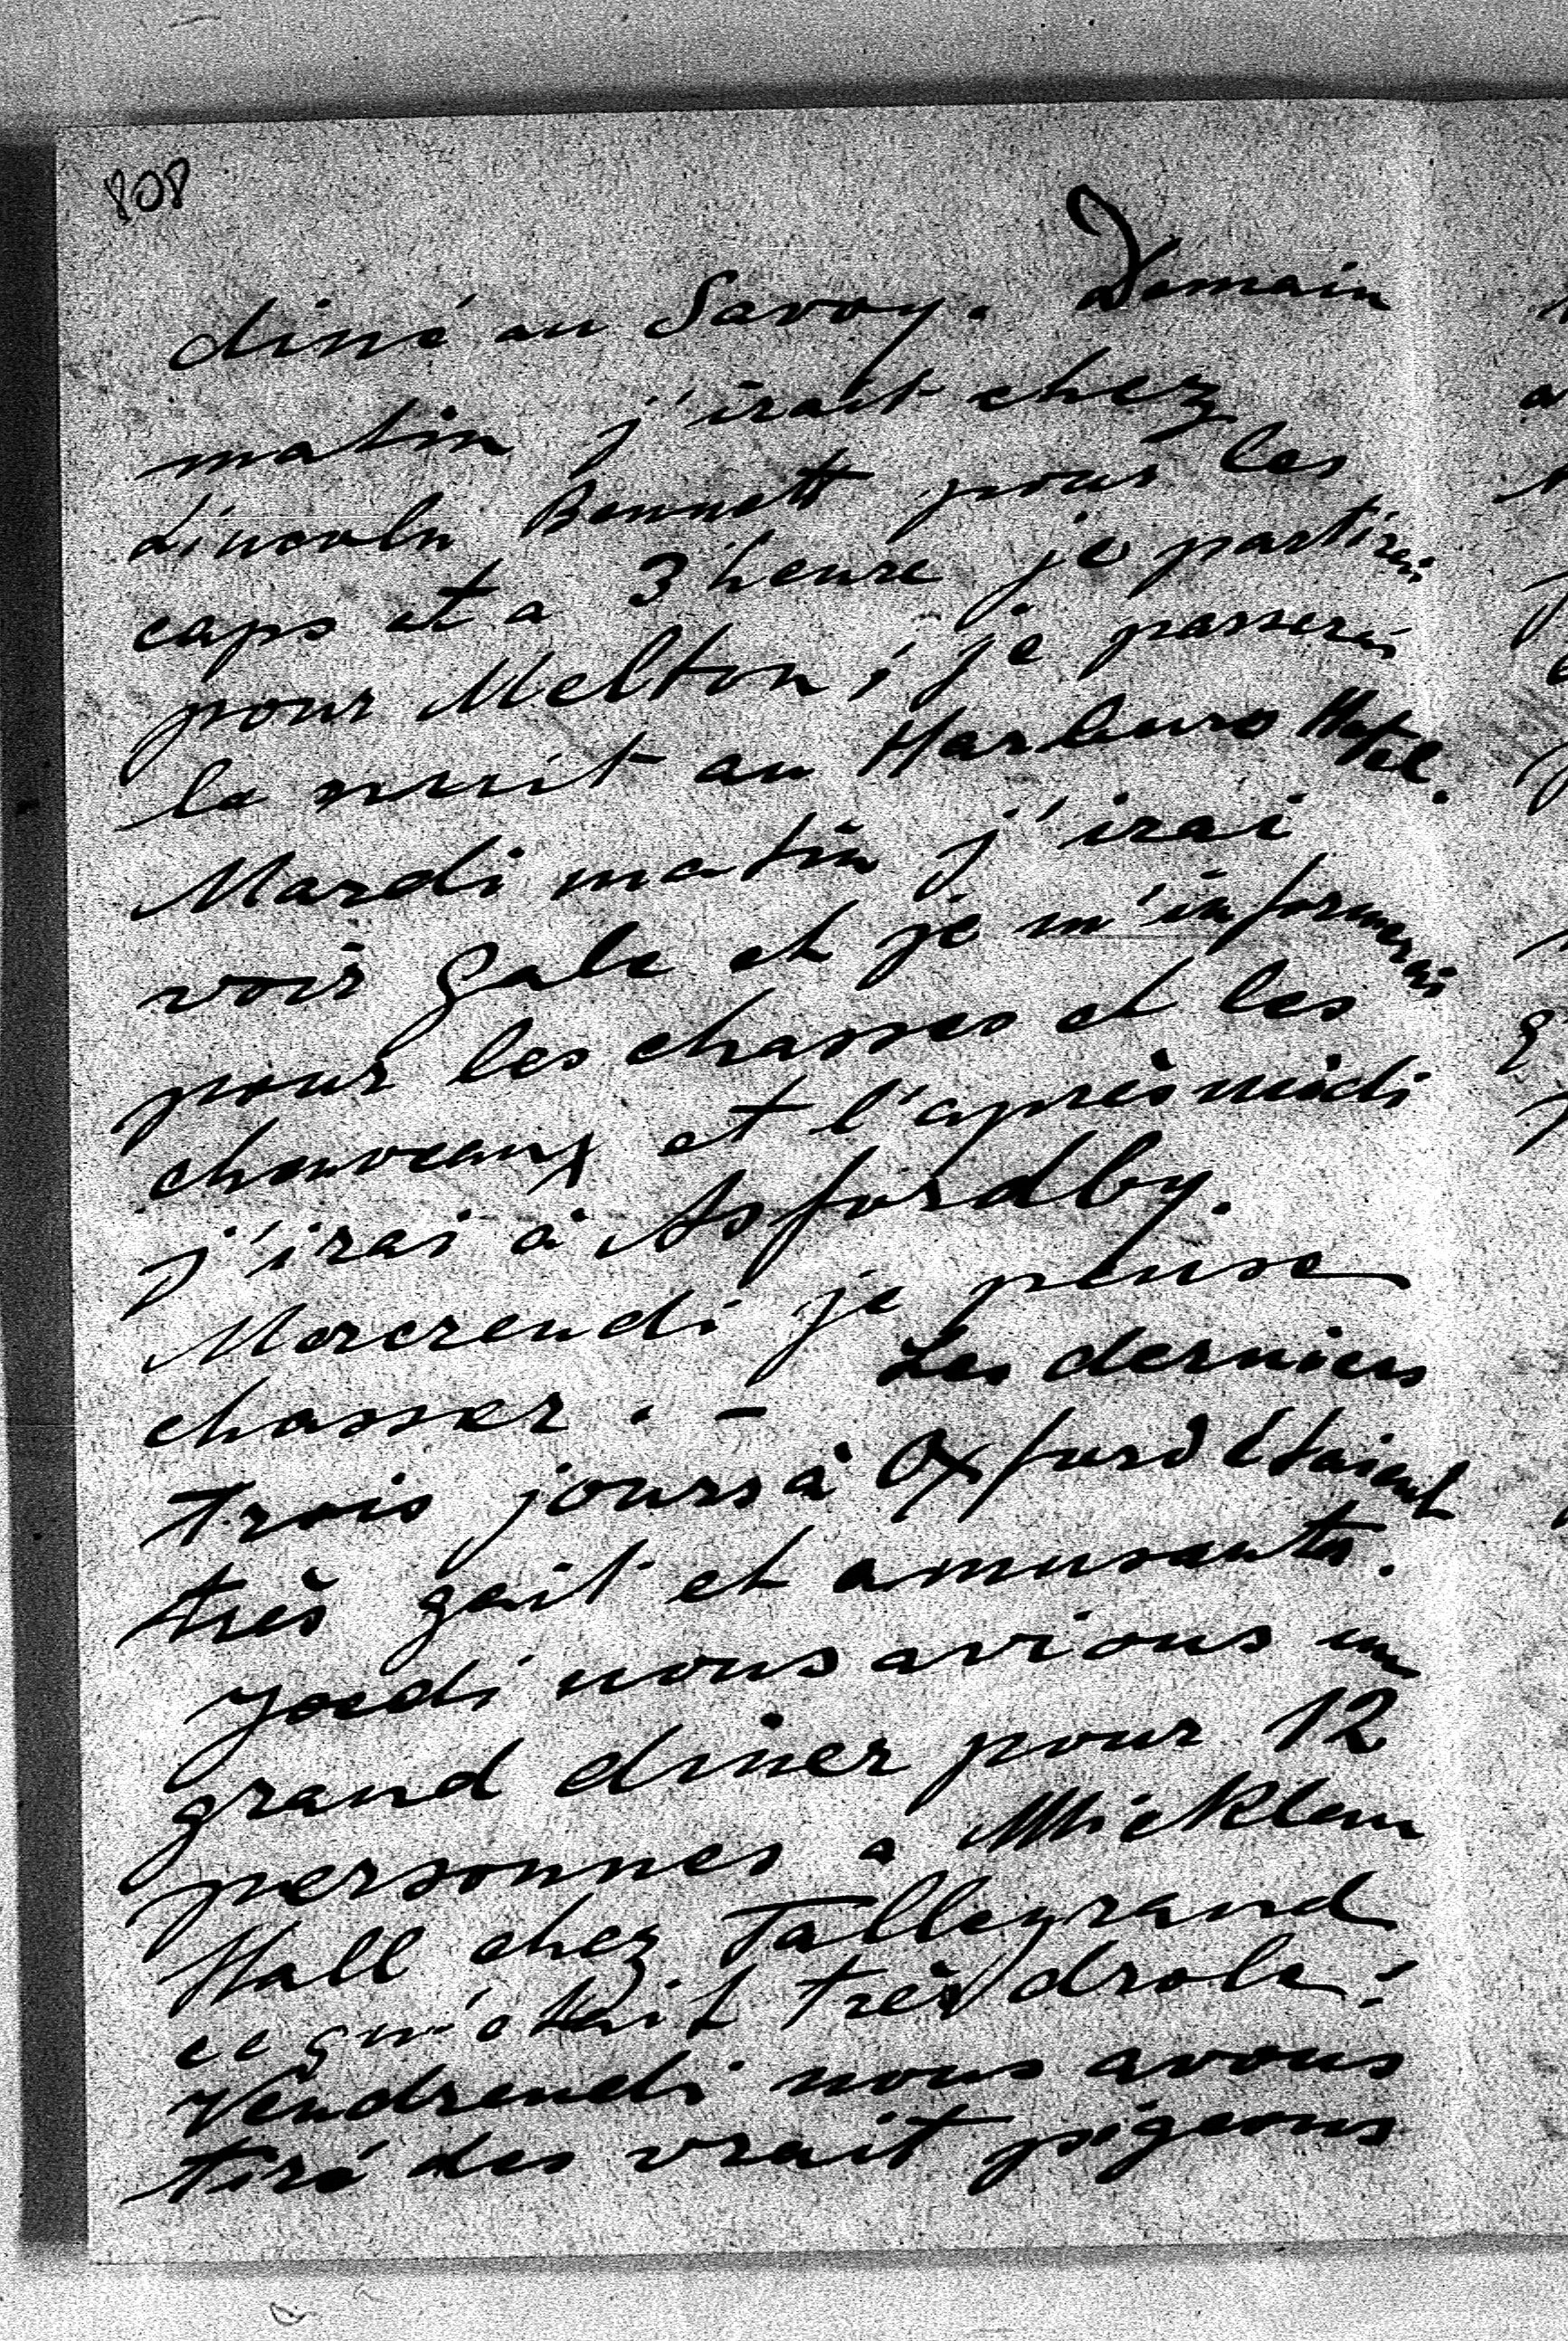 808
diné au Savoy. Demain
matin j'irait chez
Lincoln Bennett pour les
caps et a 3 heure je partirai
pour Melton; je passerai
la nuit au Harboro Hotel.
Mardi matin j'irai
voir Gale et je m'informerai
pour les chasses et les
cheuveaux et l'après midi
j'irai à Asfordby.
Mercrendi je pense
chasser. - Les derniers
trois jours à Oxford étaient
très gait et amusants.
Joedi nous avions un
grand diner pour 12
personnes a Micklem
Hall chez Talleyrand
ce qu'était très drole!
Vendrendi nous avons
tiré des vrait pigeons